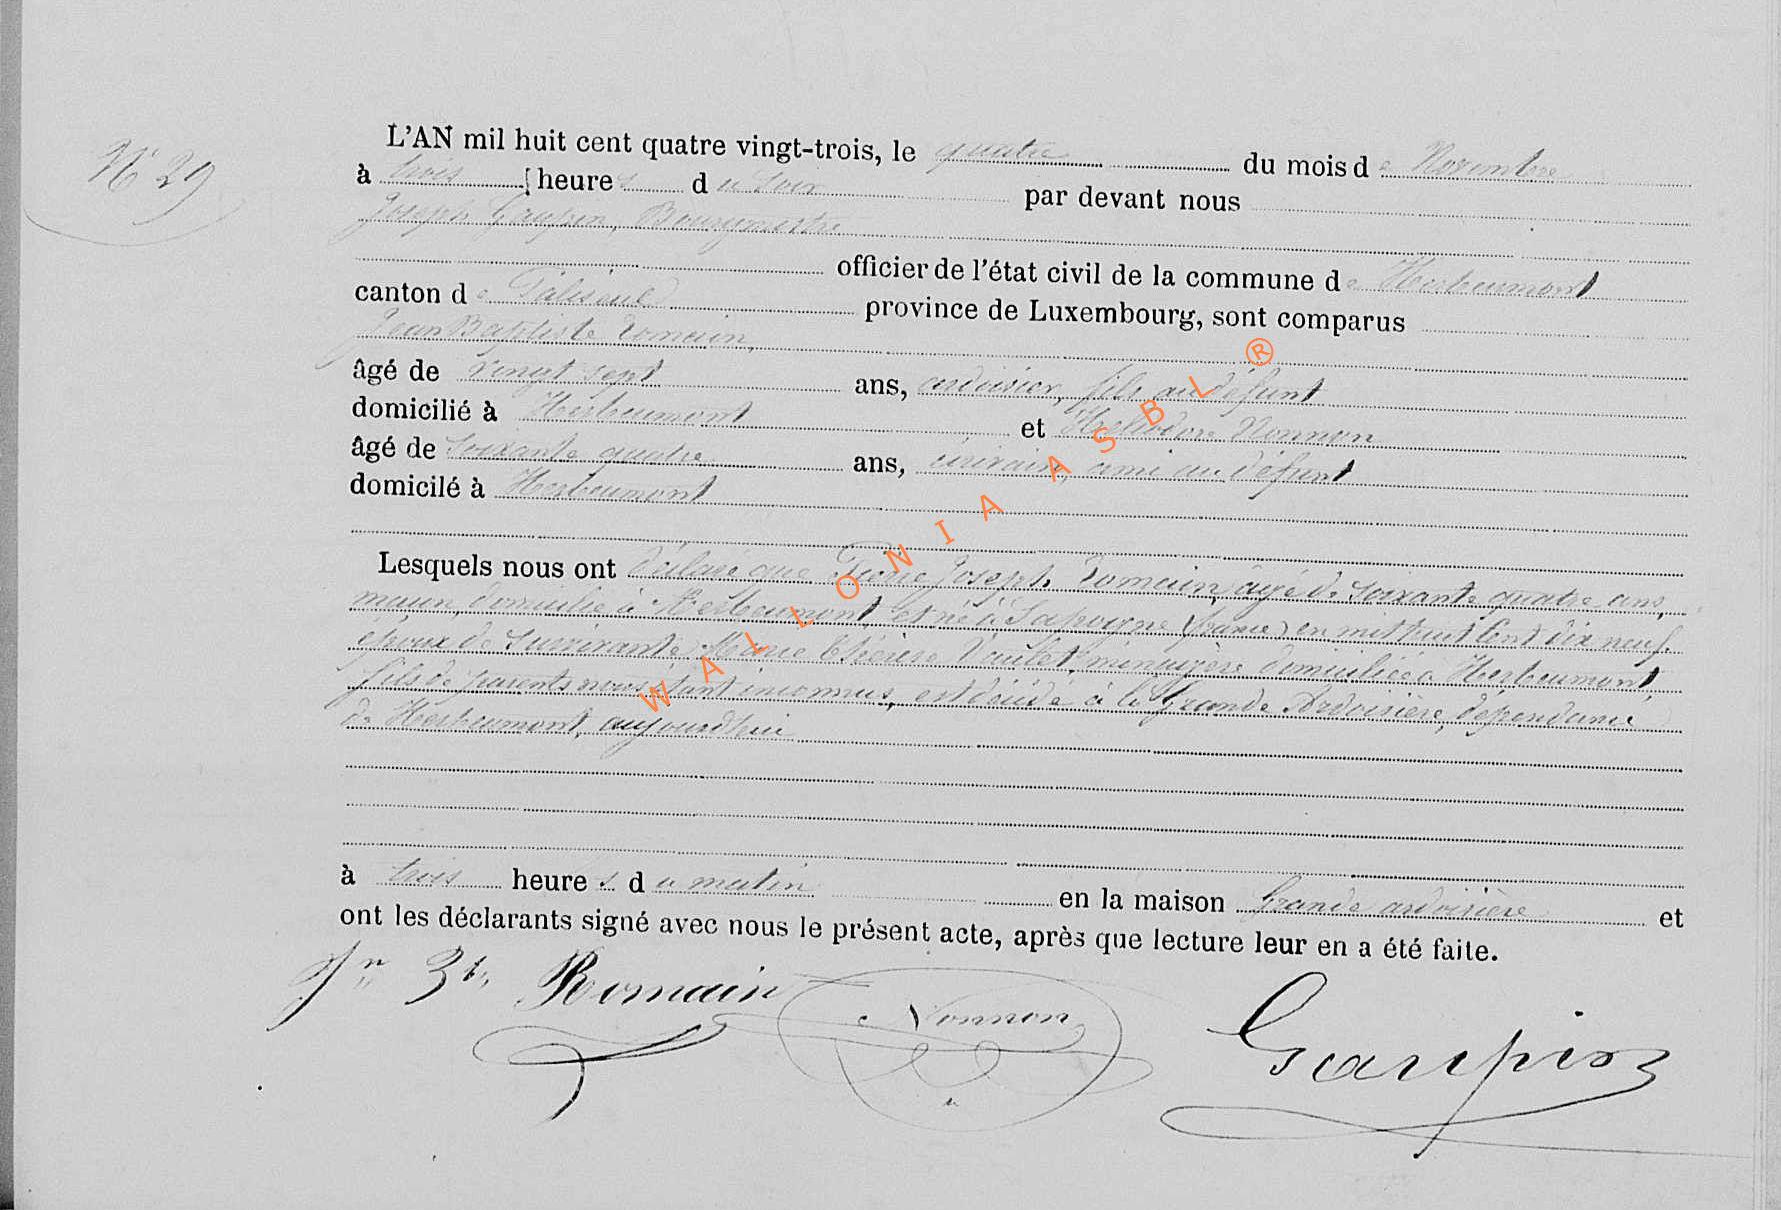 N° 29
L'AN mil huit cent quatre vingt-trois, le quatre du mois de Novembre
à trois heures du soir par devant nous
Joseph Gaupin, Bourgmestre
officier de l'état civil de la commune de Herbeumont
canton de Paliseul province de Luxembourg, sont comparus
Jean Baptiste Romain,
âgé de vingt sept ans, ardoisier, fils au défunt
domicilié à Herbeumont et Héliodore Nonnon
âgé de soixante quatre ans, ami au défunt
domicilé à Herbeumont
Lesquels nous ont déclaré que Pierre Joseph Romain, âgé de soixante quatre ans,
domicilié à Herbeumont, et né à Sapogne (france) en mil huit cent dix neuf.
époux de survivante Marie Thérèse Vaulet, ménagère domiciliée à Herbeumont,
fils de parents nous étant inconnus, est décédé à la Grande Ardoisière, dépendance
de Herbeumont, aujourd'hui
à trois heures du matin en la maison Grande ardoisière et
ont les déclarants signé avec nous le présent acte, après que lecture leur en a été faite.
Jn Bte Romain Nonnon Gaupin
WALLONIA ASBL ®